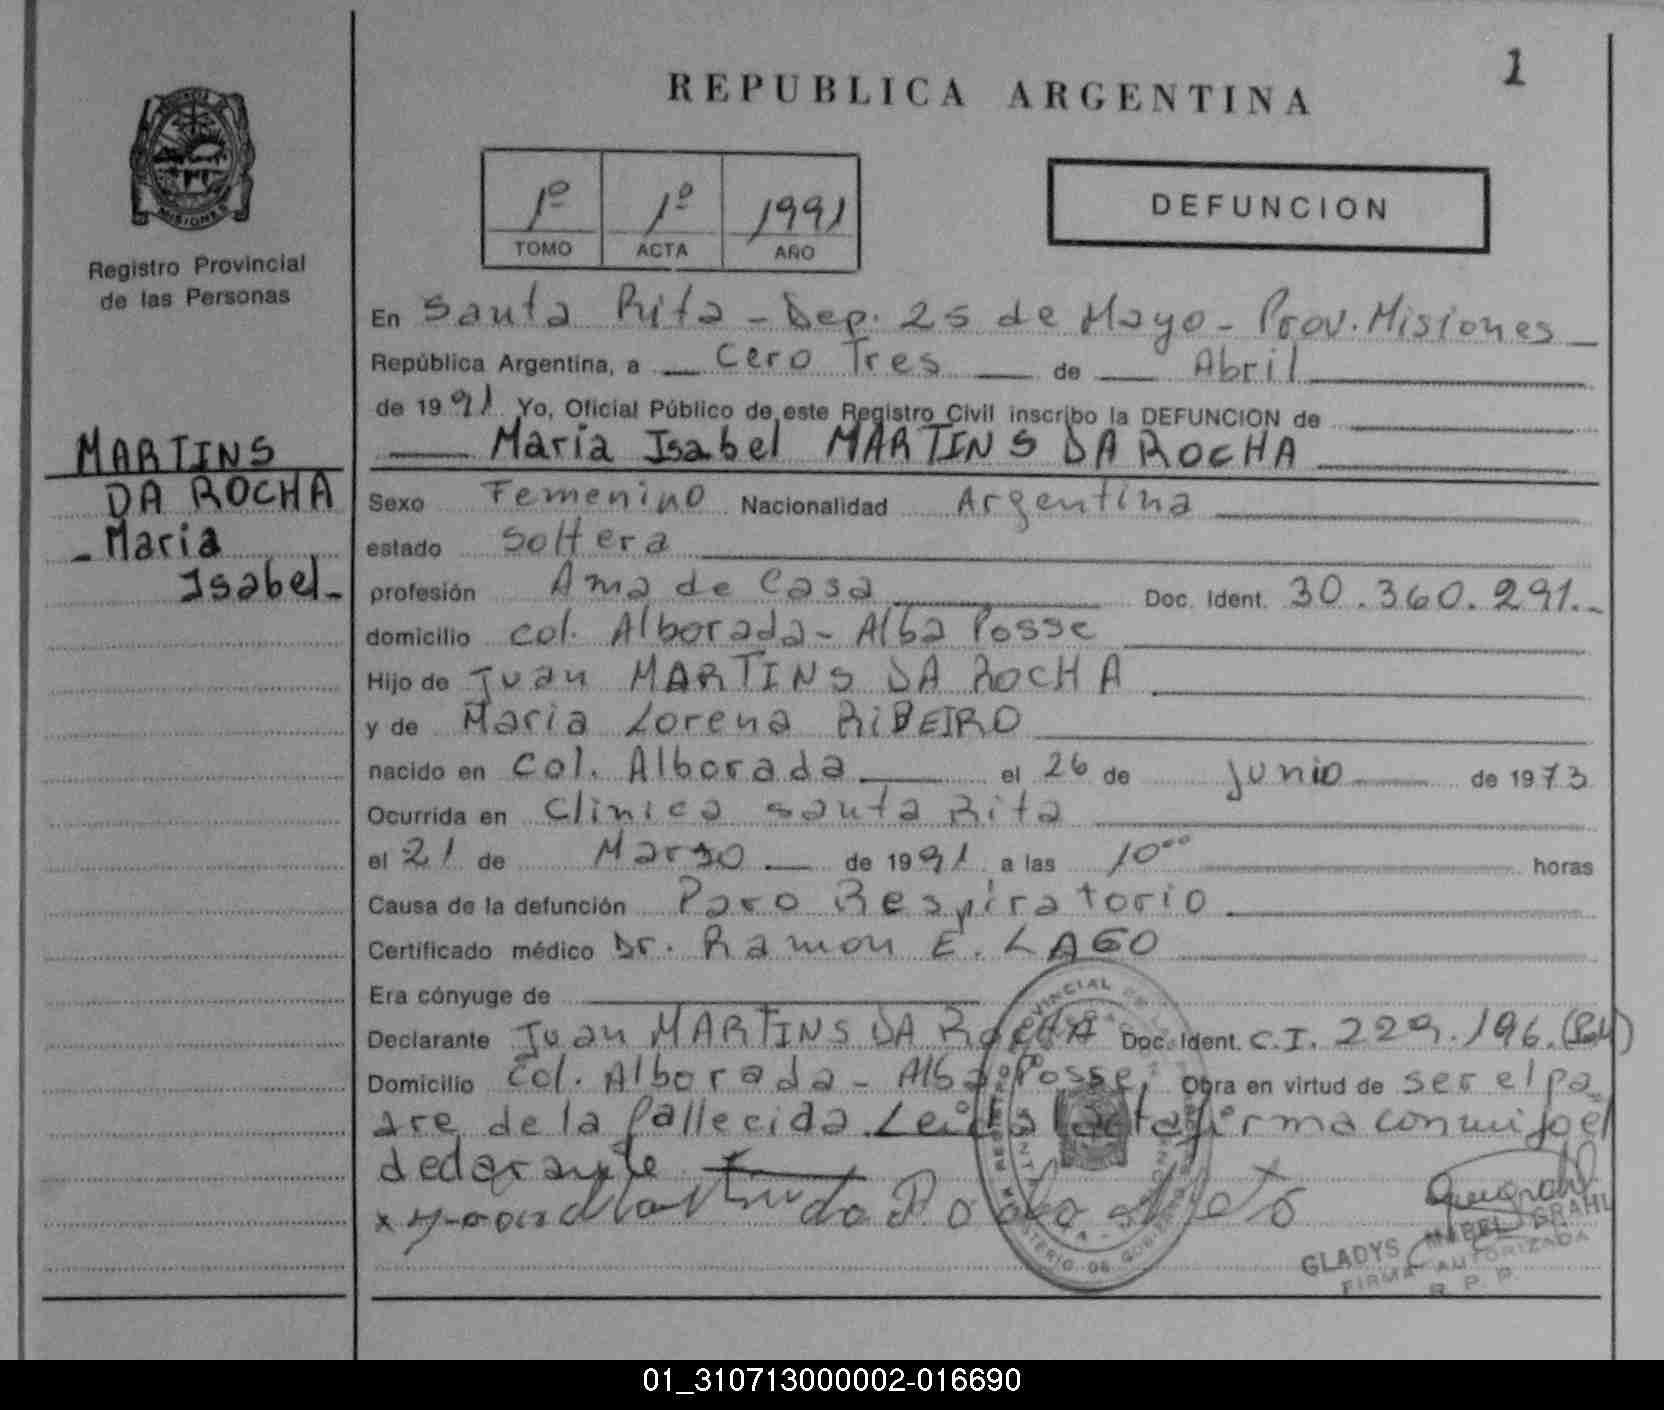 1
REPUBLICA ARGENTINA
MISIONES
Registro Provincial
de las Personas
1º 1º 1991
TOMO ACTA AÑO
DEFUNCION
En Santa Rita - Dep. 25 de Mayo - Prov. Misiones
República Argentina, a Cero Tres de Abril
de 1991 Yo, Oficial Público de este Registro Civil inscribo la DEFUNCION de
Maria Isabel MARTINS DA ROCHA
MARTINS
DA ROCHA
- Maria
Isabel -
Sexo Femenino Nacionalidad Argentina
estado Soltera
profesión Ama de Casa Doc. Ident. 30.360.291.-
domicilio col. Alborada - Alba Posse
Hijo de Juan MARTINS DA ROCHA
y de Maria Lorena RIBEIRO
nacido en Col. Alborada el 26 de junio de 1973
Ocurrida en Clinica Santa Rita
el 21 de Marzo de 1991 a las 10ºº horas
Causa de la defunción Paro Respiratorio
Certificado médico Dr. Ramon E. LAGO
Era cónyuge de
Declarante Juan MARTINS DA ROCHA Doc. Ident. C.I. 229.196.
Domicilio Col. Alborada - Alba Posse, Obra en virtud de ser el pa
dre de la fallecida. Leida acta firma conmigo el
declarante
GLADYS MABEL GRAHL
FIRMA AUTORIZADA
R. P. P.
01_310713000002-016690